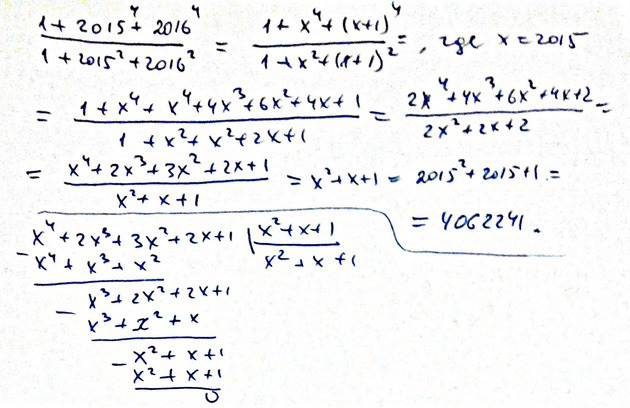 (1 + 2015⁴ + 2016⁴)/(1 + 2015² + 2016²) = (1 + x⁴ + (x+1)⁴)/(1 + x² + (x+1)²) = , где x = 2015
= (1 + x⁴ + x⁴ + 4x³ + 6x² + 4x + 1)/(1 + x² + x² + 2x + 1) = (2x⁴ + 4x³ + 6x² + 4x + 2)/(2x² + 2x + 2) =
= (x⁴ + 2x³ + 3x² + 2x + 1)/(x² + x + 1) = x² + x + 1 = 2015² + 2015 + 1 =
= 4062241.
x⁴ + 2x³ + 3x² + 2x + 1 | x² + x + 1
- x⁴ + x³ + x² | x² + x + 1
x³ + 2x² + 2x + 1
- x³ + x² + x
x² + x + 1
- x² + x + 1
0